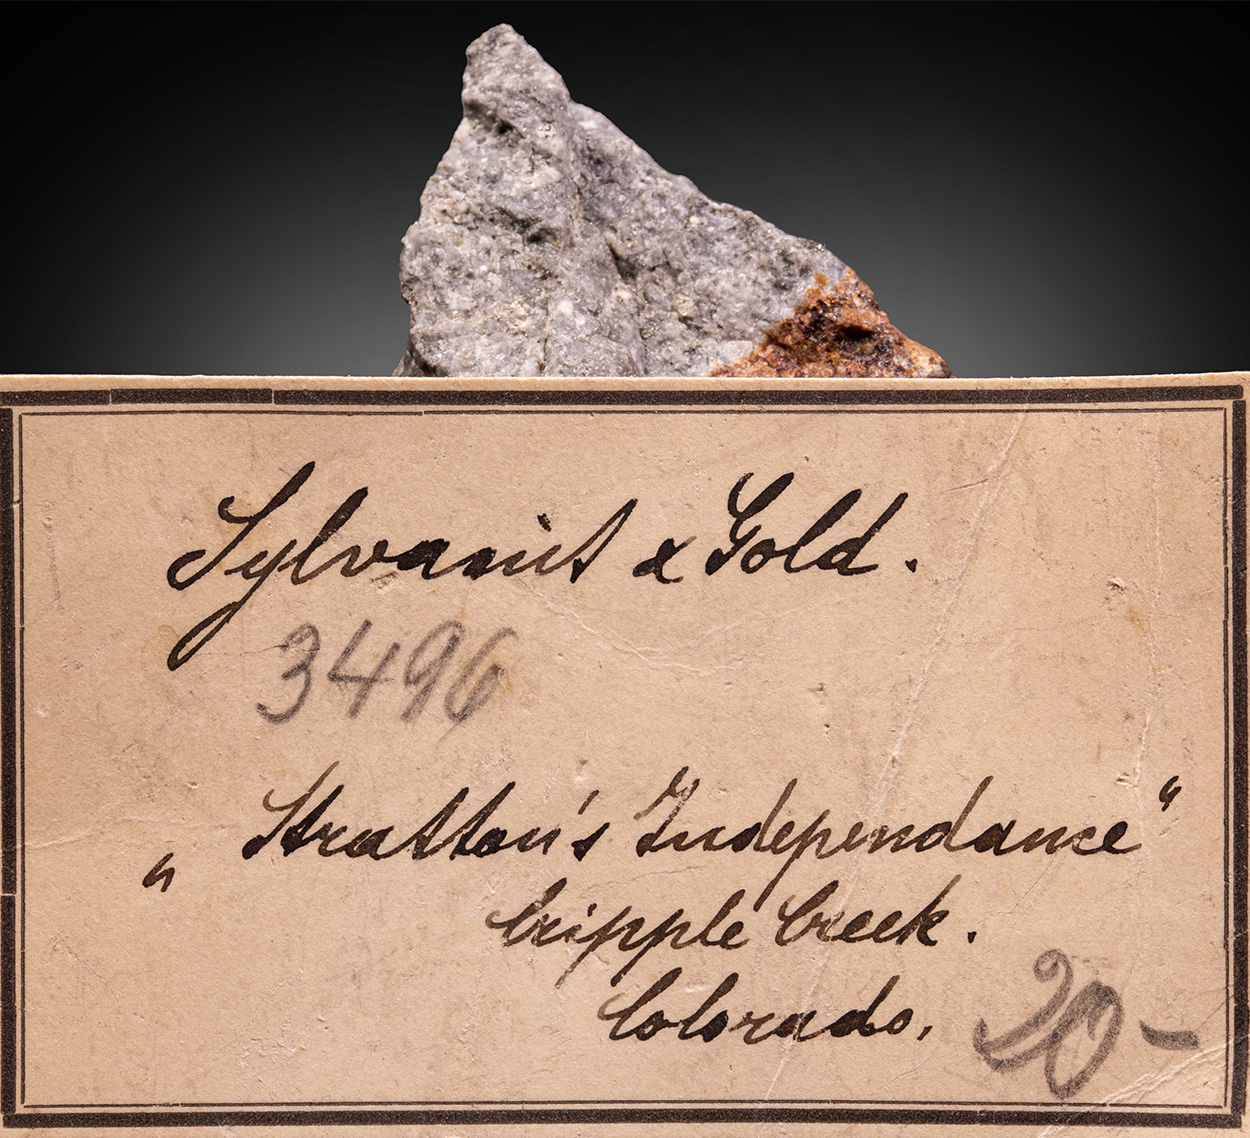 Sylvanit & Gold.
3496
„Stratton's Independance“
Cripple Creek.
Colorado.
20-